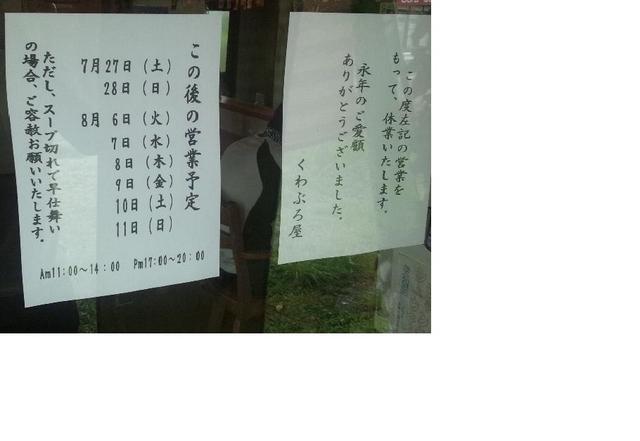 この度左記の営業を
もって、休業いたします。
永年のご愛顧
ありがとうございました。
くわぶろ屋
この後の営業予定
7月27日（土）
28日（日）
8月 6日（火）
7日（水）
8日（木）
9日（金）
10日（土）
11日（日）
ただし、スープ切れで早仕舞い
の場合、ご容赦お願いいたします。
Am11:00～14:00 Pm17:00～20:00